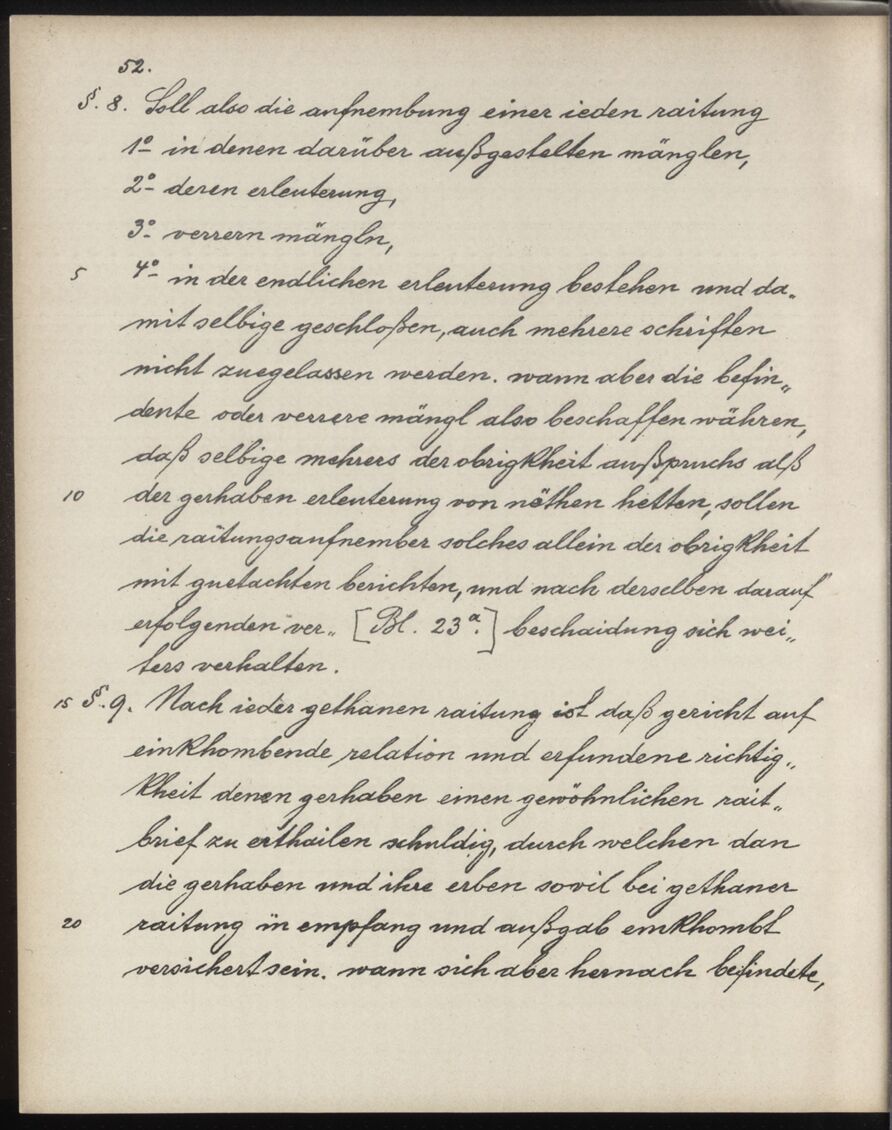 52.
§. 8. Soll also die aufnembung einer ieden raitung
1º in denen darüber außgestelten mänglen,
2º deren erleuterung,
3º verrern mängln,
5 4º in der endlichen erleuterung bestehen und da„
mit selbige geschloßen, auch mehrere schriften
nicht zuegelassen werden. wann aber die befin„
dente oder verrere mängl also beschaffen währen,
daß selbige mehrers der obrigkheit außpruchs alß
10 der gerhaben erleuterung von nöthen hetten, sollen
die raitungsaufnember solches allein der obrigkheit
mit guetachten berichten, und nach derselben darauf
erfolgenden ver„ [Bl. 23ª.] beschaidung sich wei„
ters verhalten.
15 §. 9. Nach ieder gethanen raitung ist daß gericht auf
einkhombende relation und erfundene richtig„
kheit denen gerhaben einen gewöhnlichen rait„
brief zu erthailen schuldig, durch welchen dan
die gerhaben und ihre erben sovil bei gethaner
20 raitung in empfang und außgab emkhombt
versichert sein. wann sich aber hernach befindete,